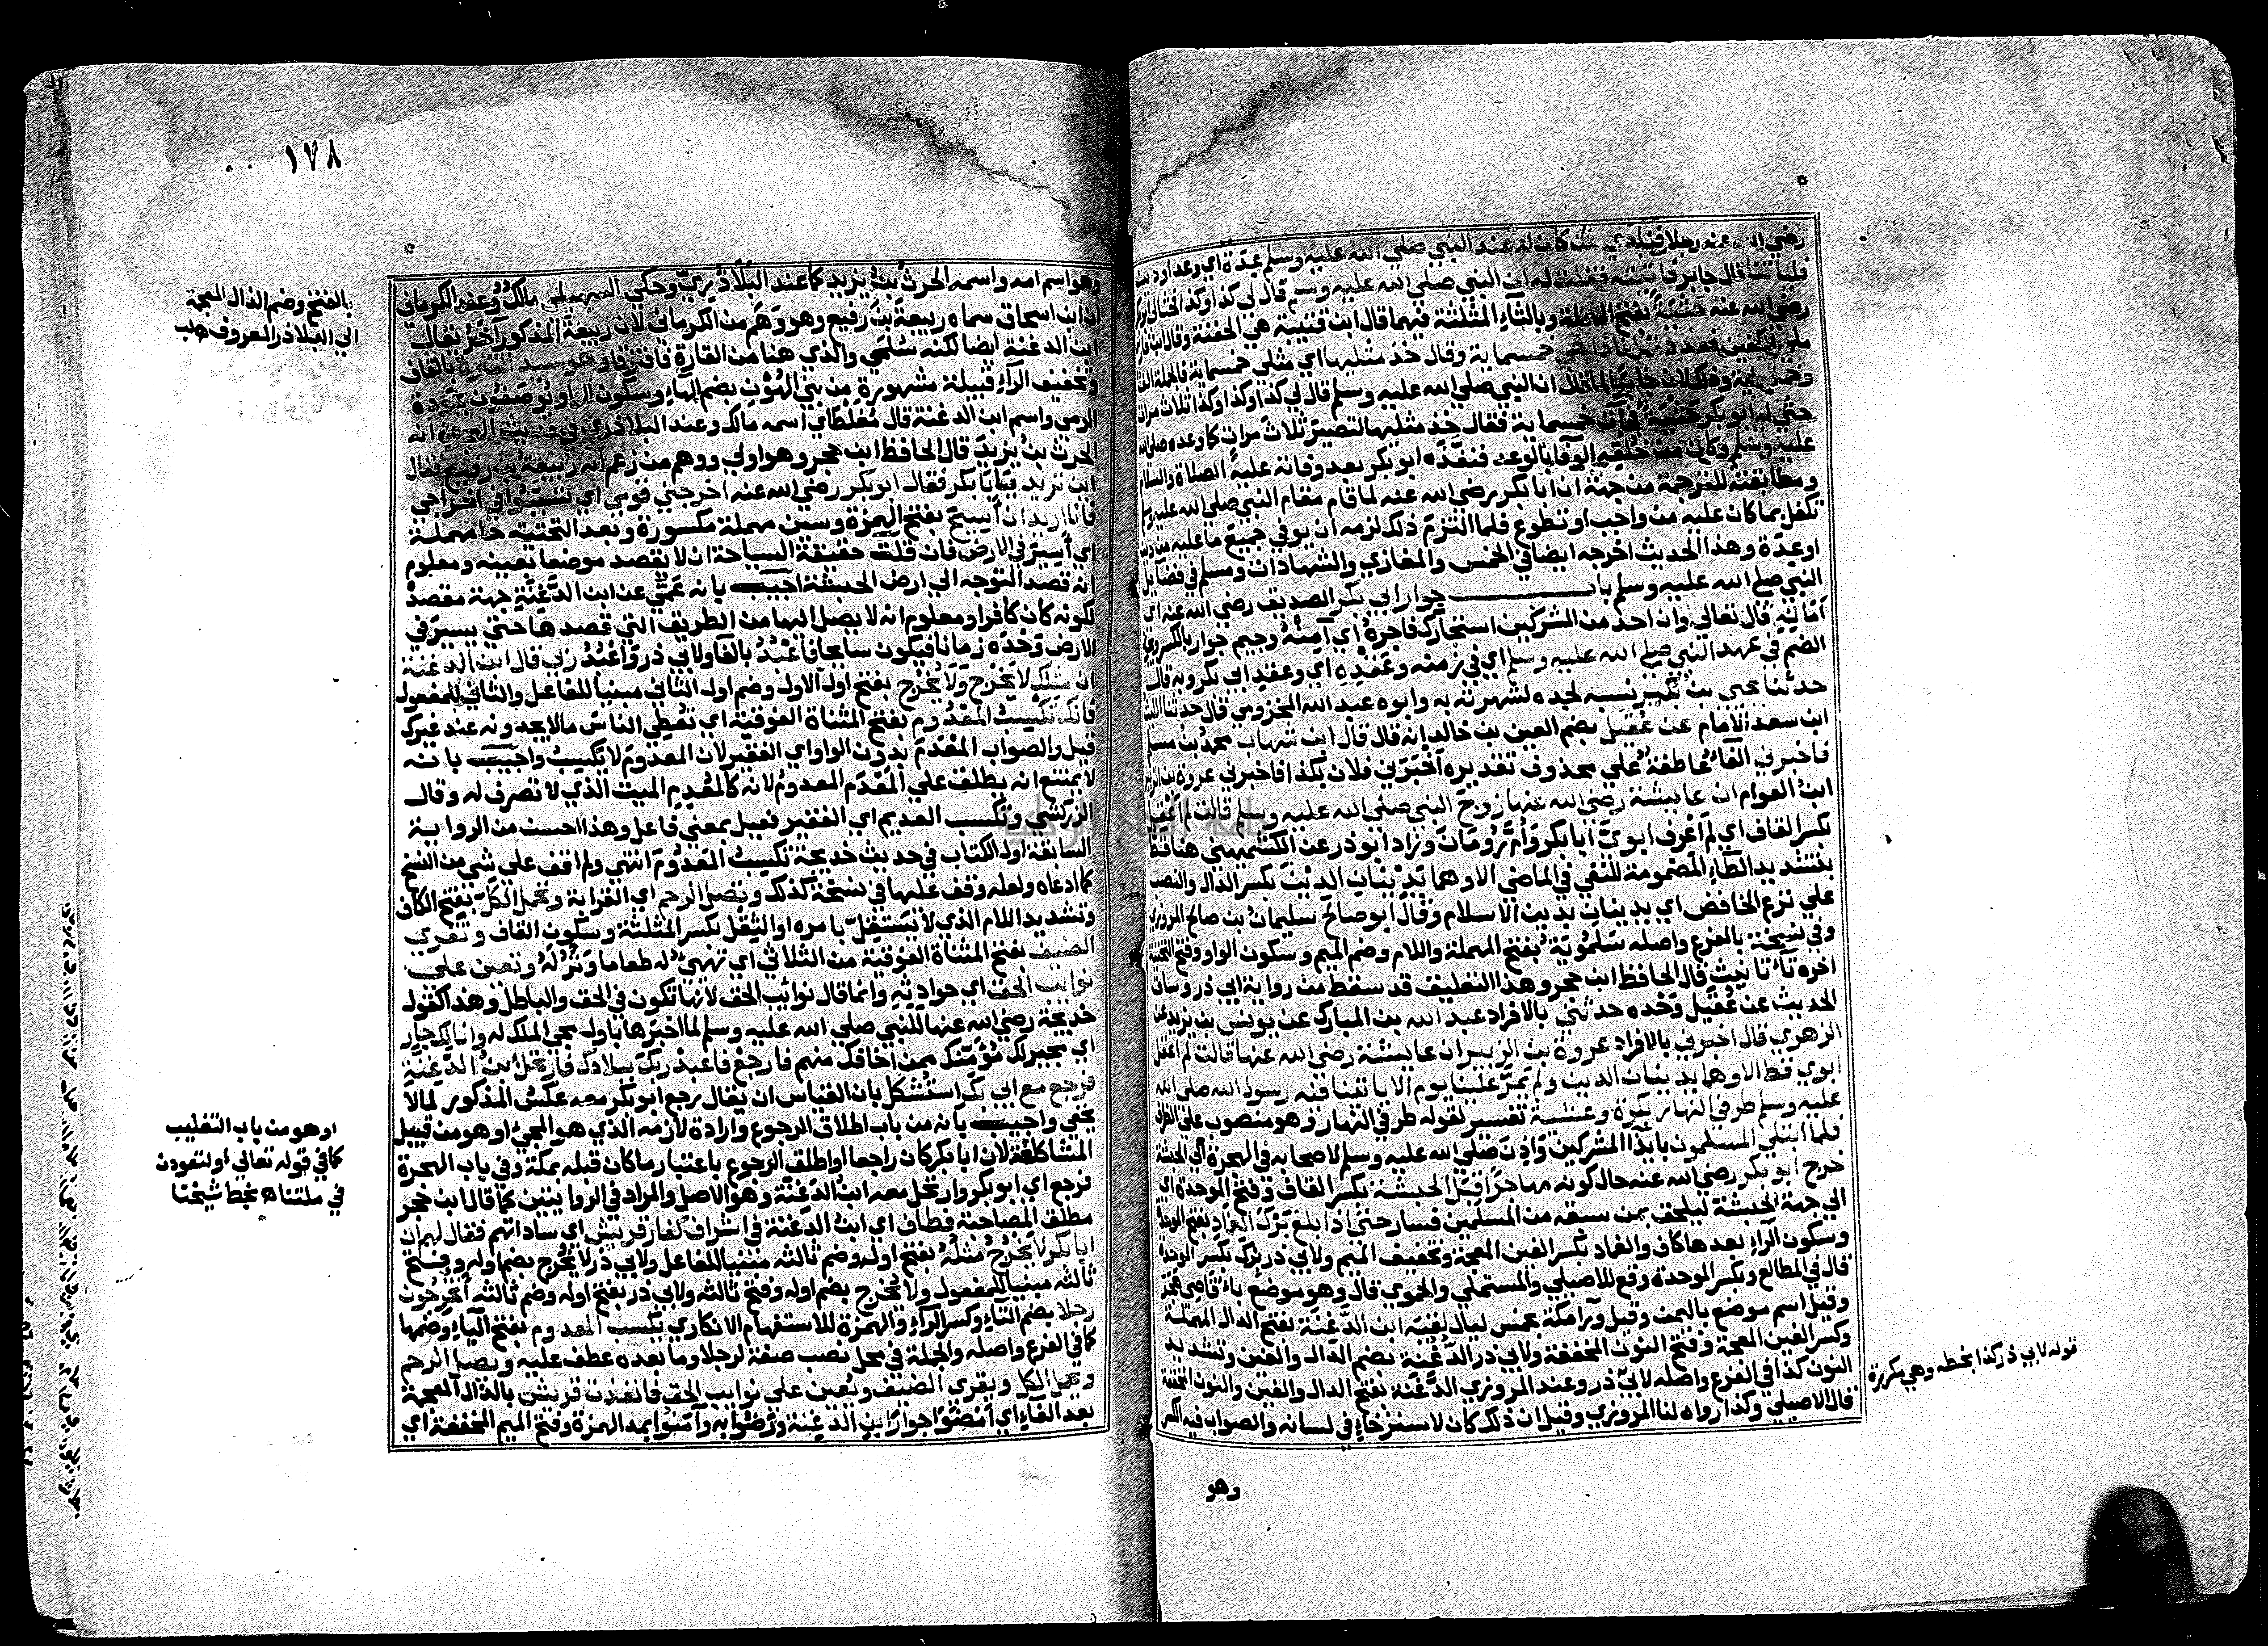 رضي الله عنه رجلا فليأتنا من كان له عند النبي صلى الله عليه وسلم عدة اي وعد او دين
فلياتنا قال جابر فاتيته فقلت له ان النبي صلى الله عليه وسلم قال لي كذا وكذا فحثى لي ابو بكر
رضي الله عنه حثية بفتح المهملة وبالثاء المثلثة فيهما قال ابن قتيبة هي الحفنة وقال ابن فارس
ملئ الكفين فعددتها فاذا هي خمسماية وقال خذ مثليها اي مثلي خمسماية فالجملة الف
وخمسماية وذلك لان جابرا لما قال ان النبي صلى الله عليه وسلم قال لي كذا وكذا وكذا ثلاث مرات
حثى له ابو بكر حثية فجات خمسماية فقال خذ مثليها لتصير ثلاث مرات كما وعده صلى الله
عليه وسلم وكان من خلقه الوفا بالوعد فنفذه ابو بكر بعد وفاته عليه الصلاة والسلام
ومطابقته للترجمة من جهة ان ابا بكر رضي الله عنه لما قام مقام النبي صلى الله عليه وسلم
تكفل بما كان عليه من واجب او تطوع فلما التزم ذلك لزمه ان يوفي جميع ما عليه من دين
او عدة وهذا الحديث اخرجه ايضا في الخمس والمغازي والشهادات ومسلم في فضايل
النبي صلى الله عليه وسلم باب جوار ابي بكر الصديق رضي الله عنه اي
امانه قال تعالى وان احد من المشركين استجارك فاجره اي آمنه وجيم جوار بالكسر ويجوز
الضم في عهد النبي صلى الله عليه وسلم اي في زمنه وعقده اي وعقد ابي بكر وبه قال
حدثنا يحيى بن بكير نسبه لجده لشهرته به وابوه عبد الله المخزومي قال حدثنا الليث
ابن سعد الامام عن عقيل بضم العين بن خالد انه قال قال ابن شهاب محمد بن مسلم
فاخبرني الفاء عاطفة على محذوف تقديره اخبرني فلان بكذا فاخبرني عروة بن الزبير
ابن العوام ان عايشة رضي الله عنها زوج النبي صلى الله عليه وسلم قالت لم اعقل
بكسر القاف اي لم اعرف ابوي ابا بكر وام رومان وزاد ابو ذر عن الكشميهني هنا قط
بتشديد الطاء المضمومة للنفي في الماضي الا وهما يدينان الدين بكسر الدال والنصب
على نزع الخافض اي يدينان بدين الاسلام وقال ابو صالح سليمان بن صالح المروزي
وفي نسخة بالفرع واصله سلمويه بفتح المهملة واللام وضم الميم وسكون الواو وفتح التحتية
اخره تاء تانيث قال الحافظ ابن حجر وهذا التعليق قد سقط من رواية ابي ذر وساق
الحديث عن عقيل وحده حدثني بالافراد عبد الله بن المبارك عن يونس بن يزيد عن
الزهري قال اخبرني بالافراد عروة بن الزبير ان عايشة رضي الله عنها قالت لم اعقل
ابوي قط الا وهما يدينان الدين ولم يمر علينا يوم الا ياتينا فيه رسول الله صلى الله
عليه وسلم طرفي النهار بكرة وعشية تفسير لقوله طرفي النهار وهو منصوب على الظرف
فلما ابتلي المسلمون بايذا المشركين واذن صلى الله عليه وسلم لاصحابه في الهجرة الى الحبشة
خرج ابو بكر رضي الله عنه حال كونه مهاجرا قبل الحبشة بكسر القاف وفتح الموحدة اي
الى جهة الحبشة ليلحق بمن سبقه من المسلمين فسار حتى اذا بلغ برك الغماد بفتح الموحدة
وسكون الراء بعدها كاف والغماد بكسر الغين المعجمة وتخفيف الميم ولابي ذر برك بكسر الموحدة
قال في المطالع وبكسر الموحدة وقع للاصيلي والمستملي والحموي قال وهو موضع باقاصي هجر
وقيل اسم موضع باليمن وقيل وراء مكة بخمس ليال لقيه ابن الدغنة بفتح الدال المهملة
وكسر الغين المعجمة وفتح النون المخففة ولابي ذر الدغنة بضم الدال والغين وتشديد
النون كذا في الفرع واصله لابي ذر وعند المروزي الدغنة بفتح الدال والغين والنون المخففة
قال الاصيلي وكذا رواه لنا المروزي وقيل ان ذلك كان لاسترخاء في لسانه والصواب فيه الكسر
قوله لابي ذر كذا بخطه وهي مكررة
وهو
١٧٨
وهو اسم امه واسمه الحرث بن يزيد كما عند البلاذري وحكى السهيلي مالك وعند الكرماني
ان ابن اسحاق سماه ربيعة بن رفيع وهو وهم من الكرماني لان ربيعة المذكور اخر يقال له
ابن الدغنة ايضا لكنه سلمي والذي هنا من القارة فافترقا وهو سيد القارة بالقاف
وتخفيف الراء قبيلة مشهورة من بني الهون بضم الهاء وسكون الواو يوصفون بجودة
الرمي واسم ابن الدغنة قال مغلطاي اسمه مالك وعند البلاذري في حديث الهجرة انه
الحرث بن يزيد قال الحافظ ابن حجر وهو اولى ووهم من زعم انه ربيعة بن رفيع فقال
اين تريد يا ابا بكر فقال ابو بكر رضي الله عنه اخرجني قومي اي تسببوا في اخراجي
فانا اريد ان اسيح بفتح الهمزة وسين مهملة مكسورة وبعد التحتية حا مهملة
اي اسير في الارض فان قلت حقيقة السياحة ان لا يقصد موضعا بعينه ومعلوم
انه قصد التوجه الى ارض الحبشة اجيب بانه عمى عن ابن الدغنة جهة مقصده
لكونه كان كافرا ومعلوم انه لا يصل اليها من الطريق التي قصدها حتى يسير في
الارض وحده زمانا فيكون سايحا فاعبد بالفاء ولابي ذر واعبد ربي قال ابن الدغنة
ان مثلك لا يخرج ولا يخرج بفتح اول الاول وضم اول الثاني مبنيا للفاعل والثاني للمفعول
فانك تكسب المعدوم بفتح المثناة الفوقية اي تعطي الناس مالا يجدونه عند غيرك
قيل والصواب المعدم بدون الواو اي الفقير لان المعدوم لا يكسب واجيب بانه
لا يمتنع انه يطلق على المعدم المعدوم لانه كالمعدوم الميت الذي لا تصرف له وقال
الزركشي وتكسب العديم اي الفقير فعيل بمعنى فاعل وهذا احسن من الرواية
السابقة اول الكتاب في حديث خديجة تكسب المعدوم انتهى ولم اقف على شي من النسخ
كما ادعاه ولعله وقف عليها في نسخة كذلك وتصل الرحم اي القرابة وتحمل الكل بفتح الكاف
وتشديد اللام الذي لا يستقل بامره او الثقل بكسر المثلثة وسكون القاف وتقري
الضيف بفتح المثناة الفوقية من الثلاثي اي تهيئ له طعاما ونزله وتعين على
نوايب الحق اي حوادثه وانما قال نوائب الحق لانها تكون في الحق والباطل وهذا كقول
خديجة رضي الله عنها للنبي صلى الله عليه وسلم لما اخبرها باول مجي الملك له وانا لك جار
اي مجير لك مؤمنك ممن اخافك منهم فارجع فاعبد ربك ببلادك فارتحل ابن الدغنة
فرجع مع ابي بكر استشكل بان القياس ان يقال رجع ابو بكر معه عكس المذكور لما لا
يخفى واجيب بانه من باب اطلاق الرجوع وارادة لازمه الذي هو المجئ او هو من قبيل
المشاكلة لان ابا بكر كان راجعا او اطلق الرجوع باعتبار ما كان قبله بمكة وفي باب الهجرة
فرجع اي ابو بكر وارتحل معه ابن الدغنة وهو الاصل والمراد في الروايتين كما قال ابن حجر
مطلق المصاحبة فطاف اي ابن الدغنة في اشراف كفار قريش اي ساداتهم فقال لهم ان
ابا بكر لا يخرج مثله بفتح اوله وضم ثالثه مبنيا للفاعل ولابي ذر لا يخرج بضم اوله وفتح
ثالثه مبنيا للمفعول ولا يخرج بضم اوله وفتح ثالثه ولابي ذر بفتح اوله وضم ثالثه أتخرجون
رجلا بضم التاء وكسر الراء والهمزة للاستفهام الانكاري يكسب المعدوم بفتح الياء وضمها
كما في الفرع واصله والجملة في محل نصب صفة لرجلا وما بعده عطف عليه ويصل الرحم
ويحمل الكل ويقري الضيف ويعين على نوايب الحق فانفذت قريش بالذال المعجمة
بعد الفاء اي امضوا جوار ابن الدغنة ورضوا به وآمنوا بمد الهمزة وفتح الميم المخففة اي
بالفتح وضم الذال المعجمة
الى البلاذر المعروف
او هو من باب التغليب
كما في قوله تعالى او لتعودن
في ملتنا اه بخط شيخنا